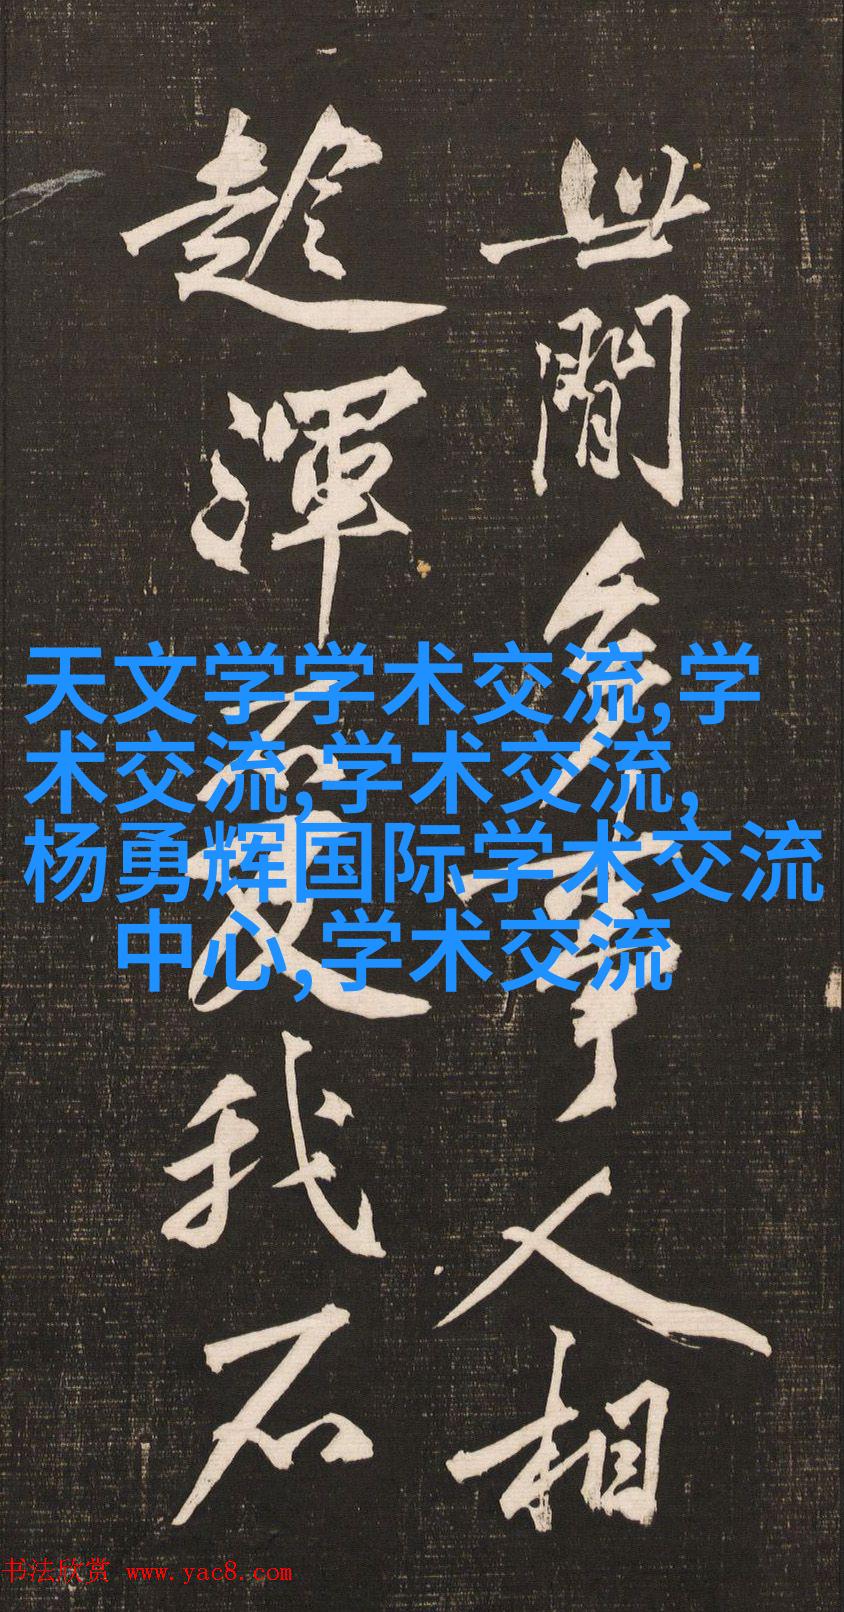 世間多事人相
趁渾不及我石
天文学学术交流,学
术交流,学术交流,
杨勇辉国际学术交流
中心,学术交流
书法欣赏 www.yac8.com